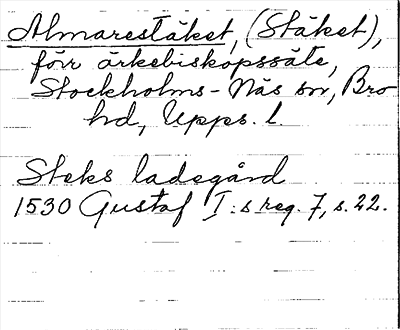 Almarestäket, (Stäket),
förr ärkebiskopssäte,
Stockholms-Näs sn, Bro
hd, Upps. l.
Steks ladegård
1530 Gustaf I:s reg. 7, s. 22.